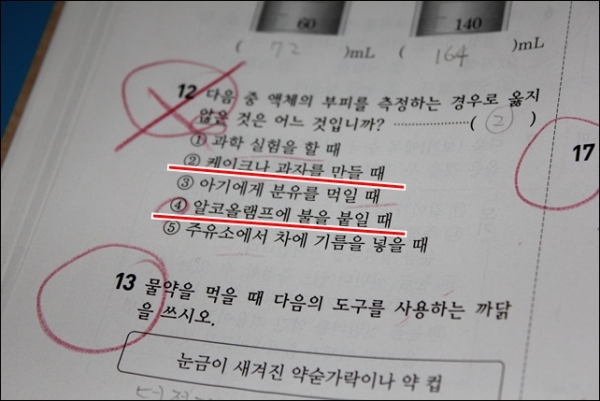 60
140
( 72 )mL ( 164 )mL
12 다음 중 액체의 부피를 측정하는 경우로 옳지
않은 것은 어느 것입니까? ……………( 2 )
① 과학 실험을 할 때
② 케이크나 과자를 만들 때
③ 아기에게 분유를 먹일 때
④ 알코올램프에 불을 붙일 때
⑤ 주유소에서 차에 기름을 넣을 때
17
13 물약을 먹을 때 다음의 도구를 사용하는 까닭
을 쓰시오.
눈금이 새겨진 약숟가락이나 약 컵